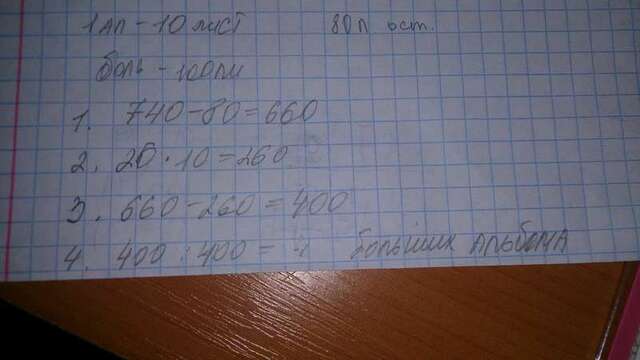 1 АЛ - 10 лист 80л ост.
боль - 100ли
1. 740-80=660
2. 26·10=260
3. 660-260=400
4. 400:400= 4 больших альбома